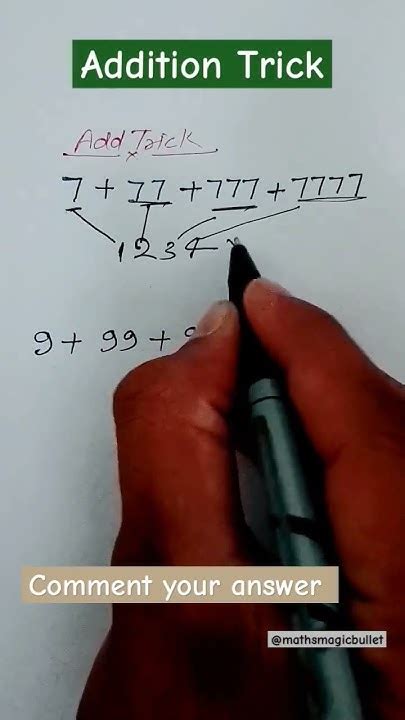 Addition Trick
Add Trick
7 + 77 + 777 + 7777
1 2 3 4 ×
9 + 99 +
Comment your answer
@mathsmagicbullet